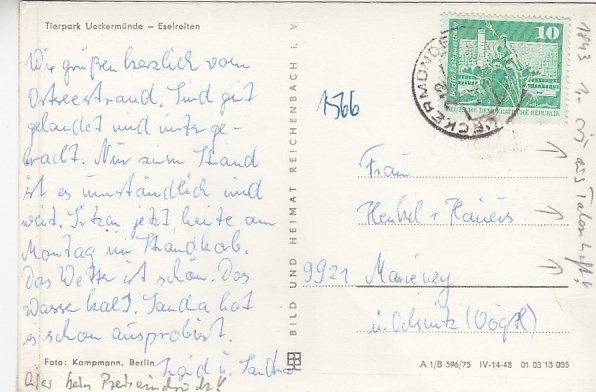 Tierpark Ueckermünde – Eselreiten
Wir grüßen herzlich vom
Ostseestrand. Sind gut
gelandet und unterge-
bracht. Nur zum Strand
ist es umständlich und
weit. Sitzen jetzt, heute am
Montag im Strandkorb.
Das Wetter ist schön. Das
Wasser kalt. Sandra hat
es schon ausprobiert.
u. Sandra
Foto: Kampmann, Berlin
Aber kein
BILD UND HEIMAT REICHENBACH I. V.
1566
UECKERMÜNDE
10
DEUTSCHE DEMOKRATISCHE REPUBLIK
Frau
9921
i. Oelsnitz (Vogtl)
A 1/B 596/75 IV-14-48 01 03 13 055
1843
1.-